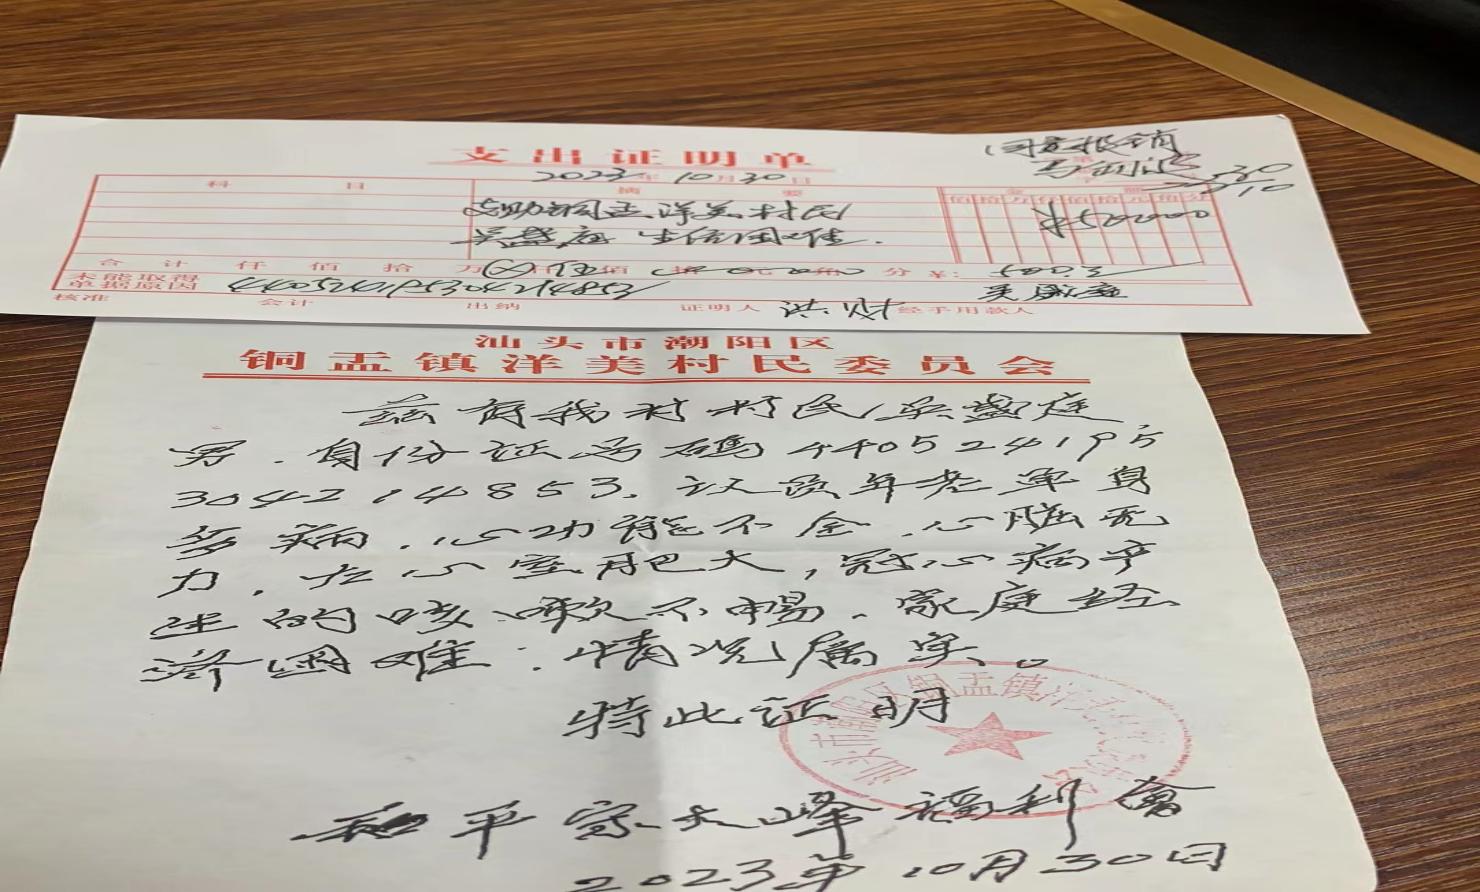 支出证明单
2023年10月30日
同意报销
科目 摘要 金额
佰拾万仟佰拾元角分
支助铜盂洋美村民
吴盛庭生活困难.
合计 仟 佰 拾 万 伍 佰 分 ¥:
未能取得
单据原因
440524195304214853
核准 会计 出纳 证明人 洪财 经手用款人
汕头市潮阳区
铜盂镇洋美村民委员会
兹有我村村民吴盛庭,
男.身份证号码440524195
304214853.该员年老单身
多病.心功能不全.心脏无
力,左心室肥大,冠心病产
生的咳嗽不暢.家庭经
济困难:情况属实。
特此证明
汕头市潮阳区铜盂镇洋美村民委员会
和平宋大峰福利會
2023年10月30日